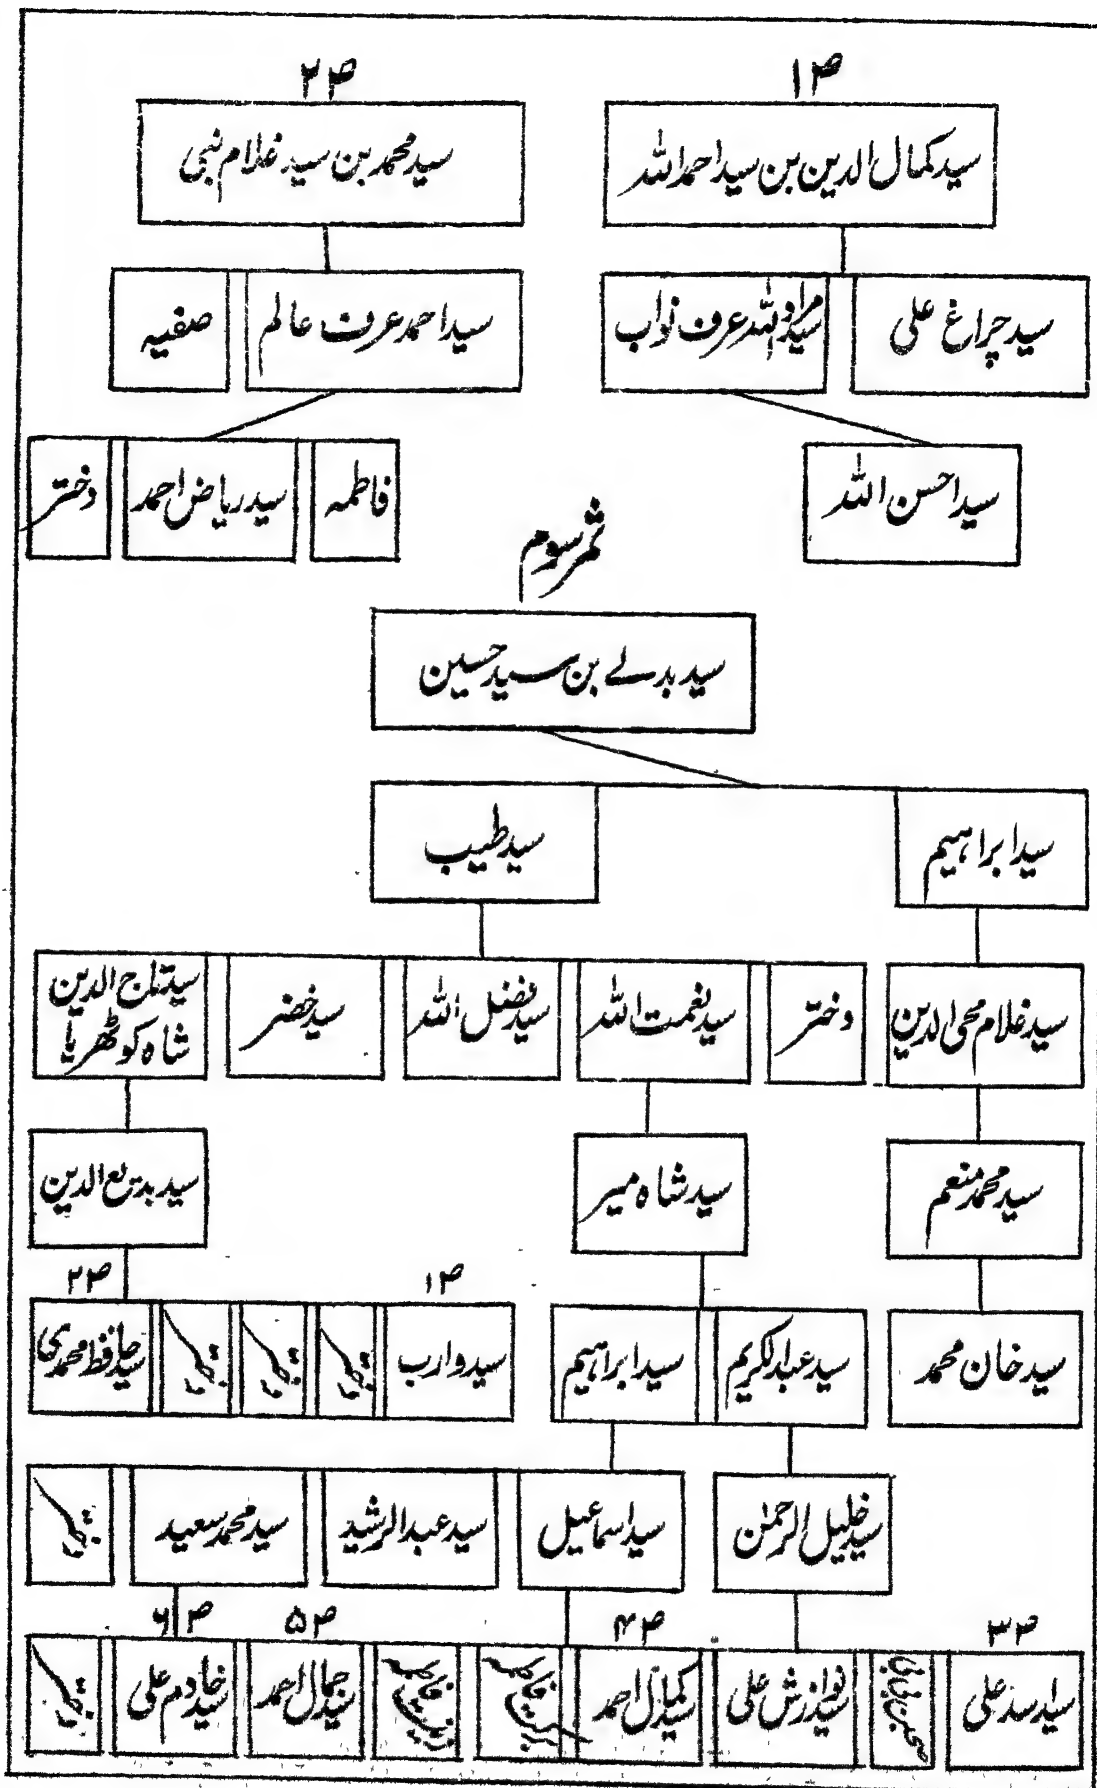 ص۱
ص۲
سید کمال الدین بن سید احمد اللہ
سید محمد بن سید غلام نبی
سید چراغ علی
سید مراد اللہ عرف نواب
سید احمد عرف عالم
صفیہ
سید احسن اللہ
فاطمہ
سید ریاض احمد
دختر
ثمر سوم
سید بدلے بن سید حسین
سید ابراہیم
سید طیب
سید غلام محی الدین
دختر
سید نعمت اللہ
سید فضل اللہ
سید خضر
سید تاج الدین
شاہ کوٹھریا
سید محمد منعم
سید شاہ میر
سید بدیع الدین
ص۱
ص۲
سید خان محمد
سید عبدالکریم
سید ابراہیم
سید وارب
دختر
دختر
دختر
سید حافظ محمدی
سید خلیل الرحمٰن
سید اسماعیل
سید عبدالرشید
سید محمد سعید
دختر
ص۳
ص۴
ص۵
ص۶
سید اسد علی
سید نوازش علی
سید کمال احمد
سید جمال احمد
سید خادم علی
دختر